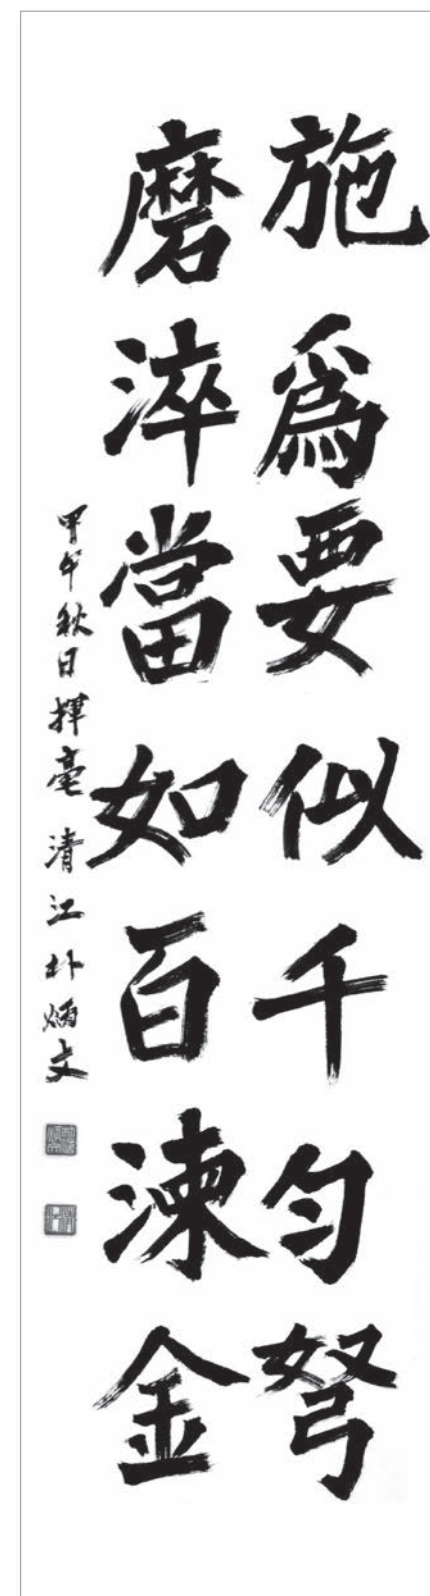 施爲要似千匀弩
磨淬當如百湅金
甲午秋日揮毫 清江朴炳文